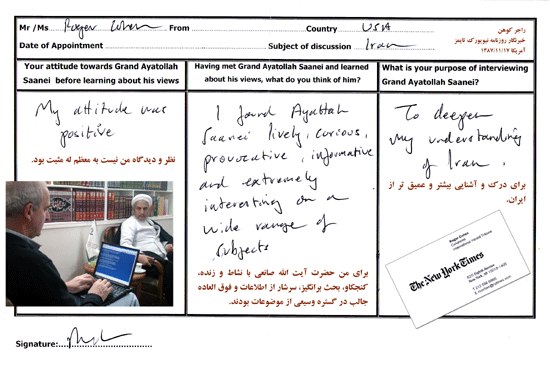 Mr /Ms Roger Cohen From Country USA
Date of Appointment Subject of discussion Iran
راجر کوهن
خبرنگار روزنامه نیویورک تایمز
آمریکا ۱۳۸۷/۱۱/۱۷
Your attitude towards Grand Ayatollah
Saanei before learning about his views
My attitude was
positive
نظر و دیدگاه من نیست به معظم له مثبت بود.
Having met Grand Ayatollah Saanei and learned
about his views, what do you think of him?
I found Ayatollah
Saanei lively, curious,
provocative, informative
and extremely
interesting on a
wide range of
subjects
برای من حضرت آیت الله صانعی با نشاط و زنده،
کنجکاو، بحث برانگیز، سرشار از اطلاعات و فوق العاده
جالب در گستره وسیعی از موضوعات بودند.
What is your purpose of interviewing
Grand Ayatollah Saanei?
To deepen
my understanding
of Iran.
برای درک و آشنایی بیشتر و عمیق تر از
ایران.
Roger Cohen
Columnist
International Herald Tribune
The New York Times
Signature: